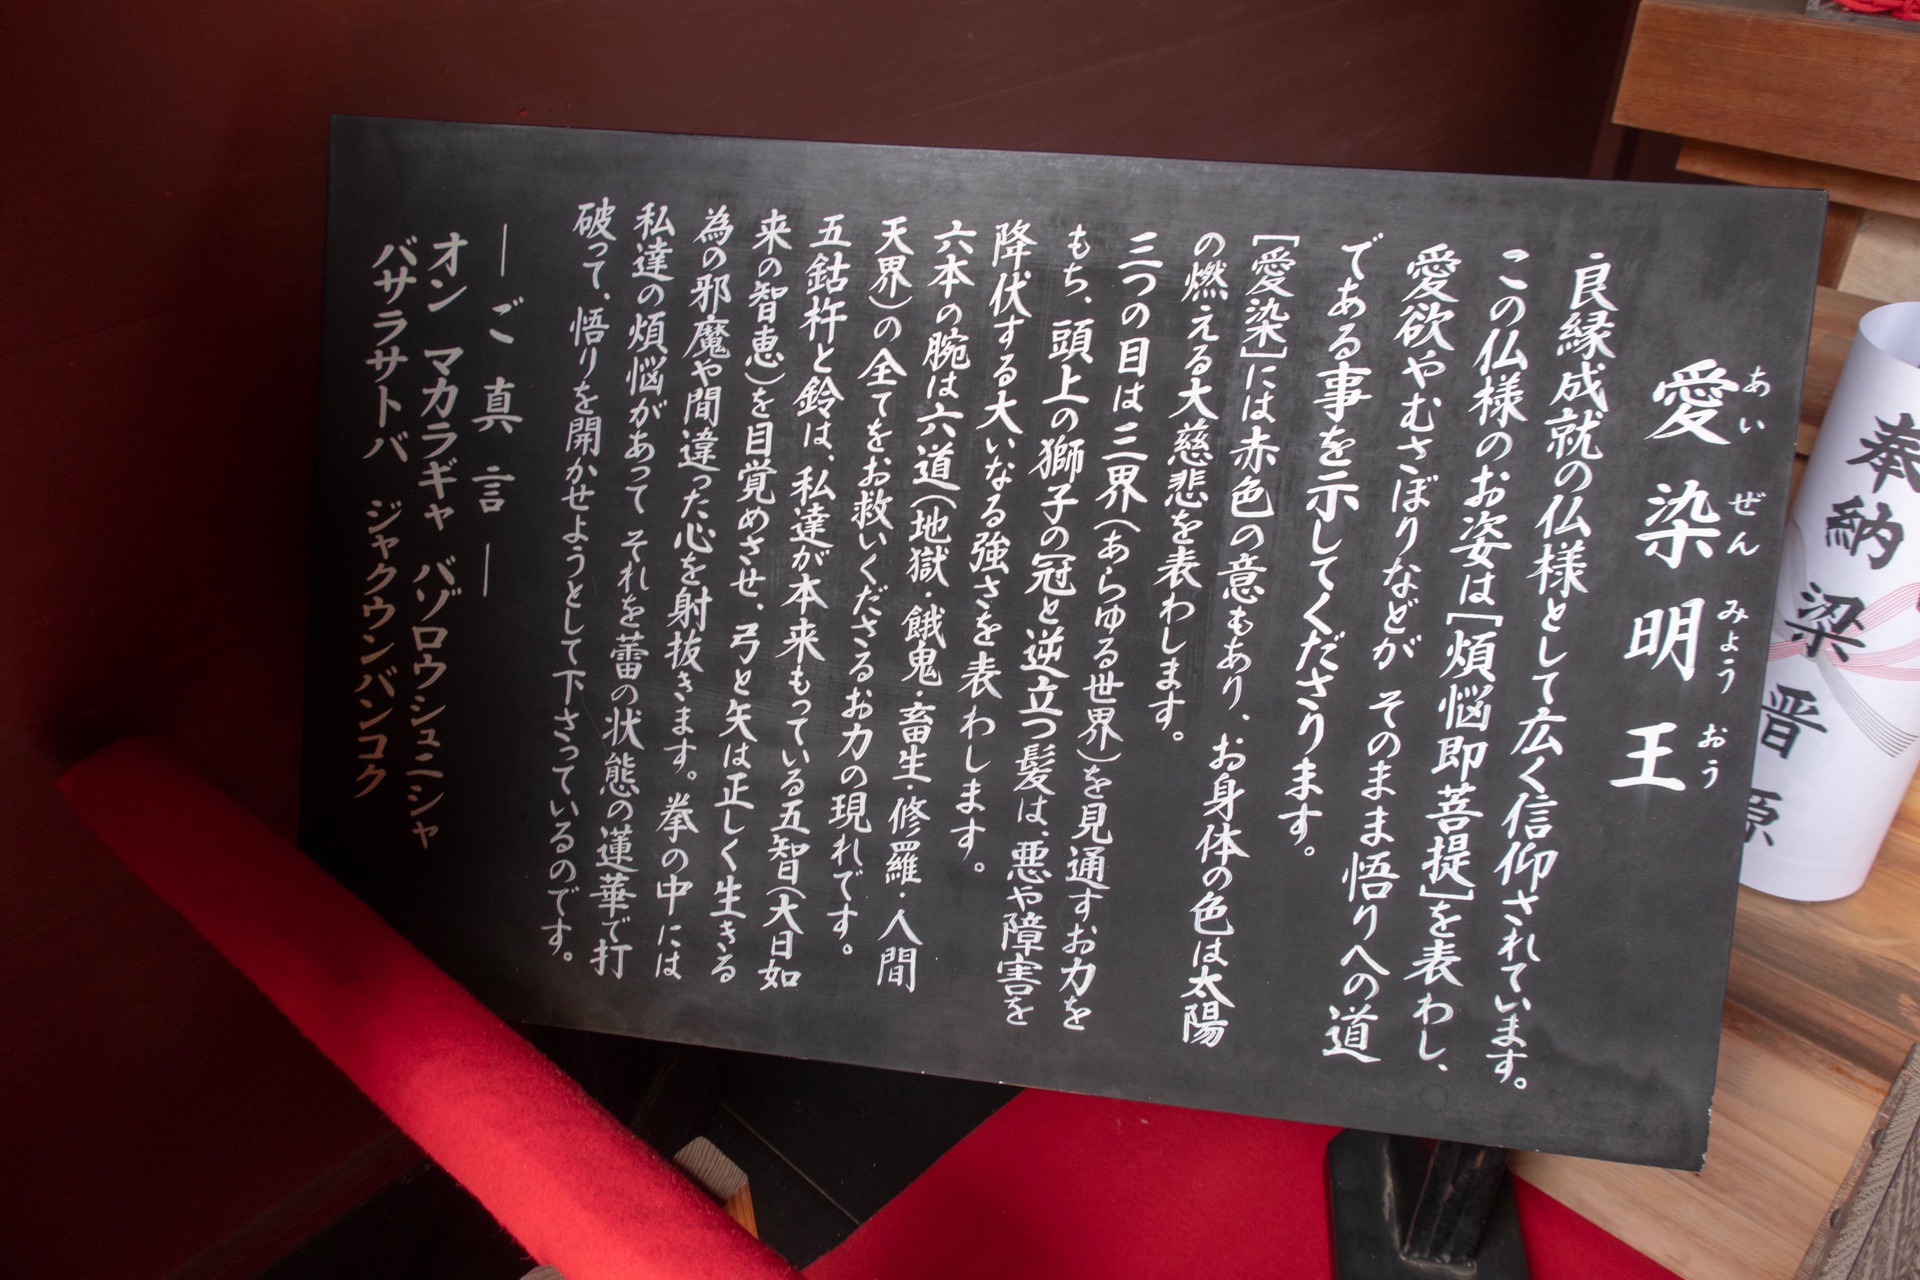 愛染明王
あいぜんみょうおう
良縁成就の仏様として広く信仰されています。
この仏様のお姿は[煩悩即菩提]を表わし、
愛欲やむさぼりなどが そのまま悟りへの道
である事を示してくださります。
[愛染]には赤色の意もあり、お身体の色は太陽
の燃える大慈悲を表わします。
三つの目は三界(あらゆる世界)を見通すお力を
もち、頭上の獅子の冠と逆立つ髪は、悪や障害を
降伏する大いなる強さを表わします。
六本の腕は六道(地獄・餓鬼・畜生・修羅・人間
天界)の全てをお救いくださるお力の現れです。
五鈷杵と鈴は、私達が本来もっている五智(大日如
来の智恵)を目覚めさせ、弓と矢は正しく生きる
為の邪魔や間違った心を射抜きます。拳の中には
私達の煩悩があって それを蕾の状態の蓮華で打
破って、悟りを開かせようとして下さっているのです。
―ご真言―
オン マカラギャ バゾロウシュニシャ
バサラサトバ ジャクウンバンコク
奉納 梁晋源